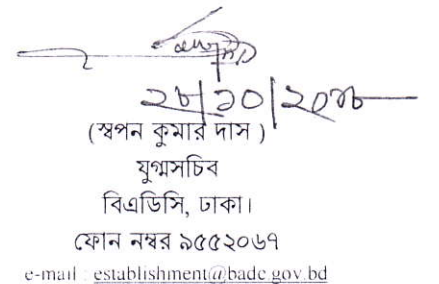 ২৮/১০/২০১৮
(স্বপন কুমার দাস )
যুগ্মসচিব
বিএডিসি, ঢাকা।
ফোন নম্বর ৯৫৫২০৬৭
e-mail : establishment@badc.gov.bd